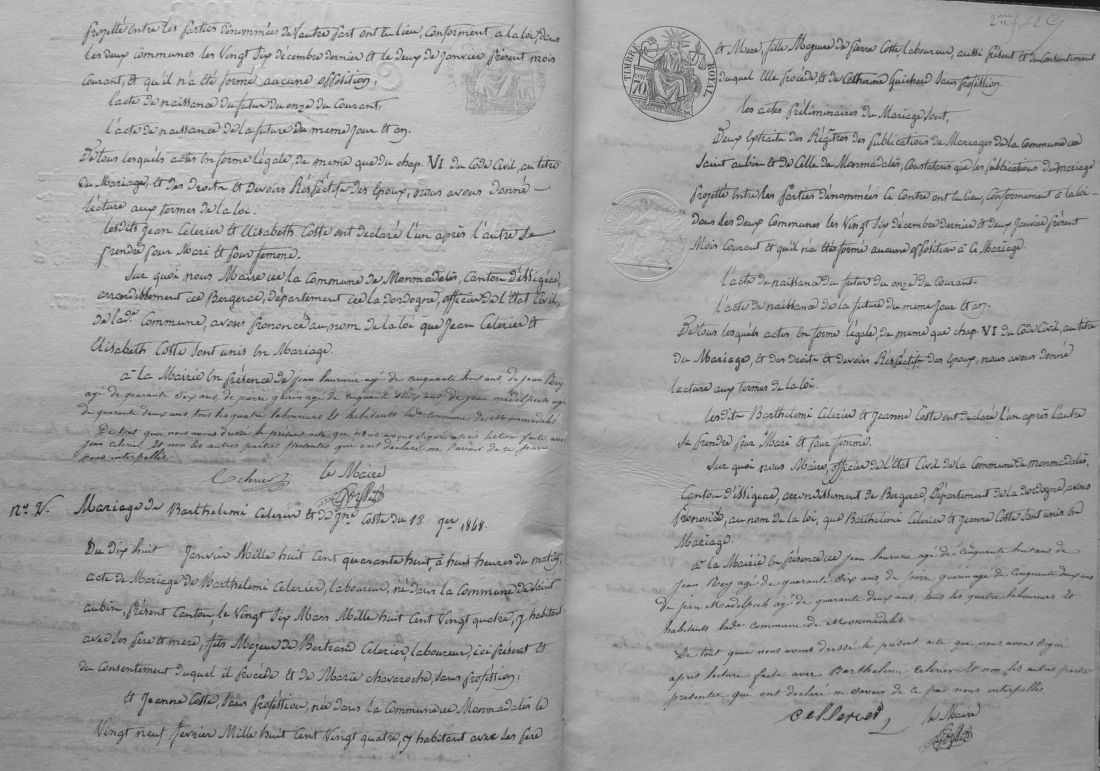 projetté entre les parties dénommées de l'autre part ont eu lieu, conforment. a la loi, dans
les deux communes les Vingt Six décembre dernier et le deux de Janvier présent mois
Courant, et qu'il n'a été formé aucune opposition;
l'acte de naissance du futur du onze du Courant;
l'acte de naissance de la future du meme jour et an.
De tous lesquels actes en forme légale, de meme que du chap. VI du Code Civil, au titre
du Mariage, et des Droits et Devoirs Réspéctifs des époux, nous avons donné
lecture aux termes de la loi.
lesdits Jean Celerier et Elisabeth Coste ont déclaré l'un après l'autre se
prendre pour Mari et pour femme.
Sur quoi nous Maire de la Commune de Monmadalés, Canton d'Issigeac,
arrondissement de Bergerac, département de la dordogne, officier de l'Etat Civil,
de lad. Commune, avons prononcé au nom de la loi que Jean Celerier et
Elisabeth Coste sont unis en Mariage.
à la Mairie en présence de jean agé de cinquante huit ans, de jean Rey
agé de quarante Six ans, de pierre agé de cinquante deux ans de jean madelpech agé
de quarante deux ans, tous les quatre laboureurs et habitants lade commune de Monmadalés
De tout quoi nous avons dressé le présent acte que nous avons Signé après lecture faite avec
jean celerier Et non les autres parties presentes qui ont declaré ne Savoir de ce par
nous interpellés.
Celerier
le Maire
no. V. Mariage de Barthelemi Celerier et de Jne. Coste du 18 1848.
Du dix huit Janvier Mille huit Cent quarante huit à huit heures du matin,
acte de Mariage de Barthelemi Celerier, laboureur, né dans la Commune de Saint
aubin, présent Canton le Vingt Six Mars Mille huit Cent Vingt quatre, y habitant
avec ses père et mère, fils Majeur de Bertrand Celerier, laboureur, ici présent et
du Consentement duquel il procéde et de Marie chavaroche, sans proféssion;
et Jeanne Coste, Sans proféssion, née dans la Commune de Monmadalés le
Vingt neuf fevrier Mille huit Cent Vingt quatre, y habitant avec ses père
2me
TIMBRE ROYAL
70
et Mere, fille Majeure de Pierre Coste laboureur, aussi présent et du Consentement
duquel Elle procéde, et de Catherine Guichard Sans proféssion.
les actes préliminaires du Mariage sont,
Deux Extraits des Régistres des publications de Mariages de la Commune de
Saint aubin et de Celle de Monmadalés, Constatans que les publications du mariage
projetté entre les parties dénommées Ci Contre ont eu lieu, Conformement a la loi
dans les deux Communes les Vingt Six décembre dernier et deux Janvier présent
Mois Courant et qu'il n'a été formé aucune opposition à ce Mariage.
l'acte de naissance du futur du onze du Courant.
l'acte de naissance de la future du meme jour et an.
De tous lesquels actes en forme légale, de meme que chap. VI du Code Civil, au titre
du Mariage, et des Droits et devoirs Réspéctifs des époux, nous avons donné
lecture aux termes de la loi.
lesdits Barthelemi Celerier et Jeanne Coste ont déclaré l'un après l'autre
se prendre pour Mari et pour femme.
Sur quoi nous Maire, officier de l'Etat Civil de la Commune de monmadalés,
Canton d'Issigeac, arrondissement de Bergerac, Département de la dordogne, avons
prononcé, au nom de la loi, que Barthelemi Celerier et Jeanne Coste sont unis en
Mariage.
à la Mairie en présence de jean agé de cinquante huit ans de
jean Rey agé de quarante Six ans de pierre agé de cinquante deux ans
de jean Madelpech agé de quarante deux ans, tous les quatre laboureurs Et
habitants lade commune de Monmadalés
De tout quoi nous avons dressé le présent acte que nous avons Signé
après lecture faite avec Barthelemi Celerier et non les autres parties
presentes qui ont déclaré ne Savoir de ce par nous interpellés
Cellerier
le Maire